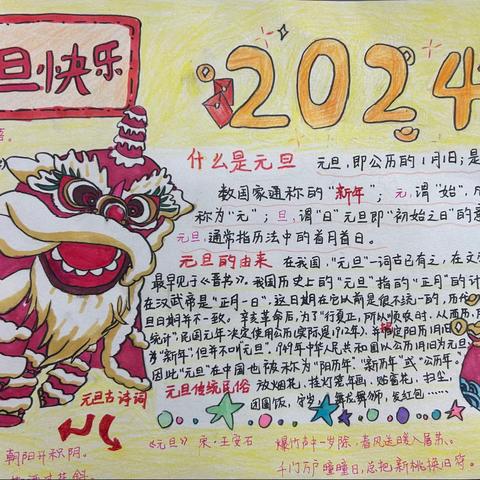 旦快乐
2024
什么是元旦 元旦,即公历的1月1日;是
数国家通称的“新年”;元,谓“始”,
称为“元”;旦,谓“日”元旦即“初始之日”的意
元旦,通常指历法中的首月首日。
元旦的由来 在我国,“元旦”一词古已有之,在文
最早见于《晋书》。我国历史上的“元旦”指的“正月”的计
在汉武帝是“正月一日”,这日期在它以前是很不统一的,历代
旦日期并不一致。辛亥革命后,为了“行夏正,所以顺农时,从西历,所
统计”,民国元年决定使用公历(实际是1912年),并规定阳历1月1日
为“新年”,但并不叫“元旦”。1949年中华人民共和国以公历1月1日为元旦,
因此“元旦”在中国也被称为“阳历年”“新历年”或“公历年。”
元旦传统民俗 放烟花,挂灯笼年画,贴窗花,扫尘,
团圆饭,守岁,舞龙舞狮,发红包……
元旦古诗词
朝阳开积阴。
《元旦》宋·王安石 爆竹声中一岁除,春风送暖入屠苏。
千门万户曈曈日,总把新桃换旧符。